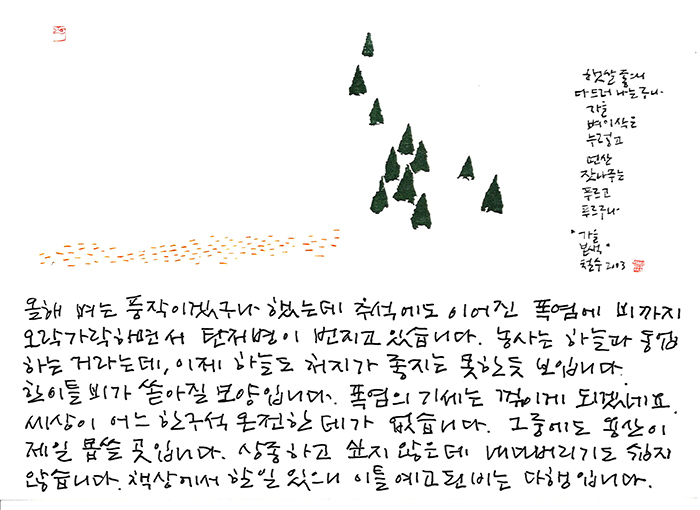 햇살 좋으니
다 드러나는구나
가을
벼이삭은
누렇고
먼 산
잣나무는
푸르고
푸르구나
"가을
본색"
철수 2003
올해 벼는 풍작이겠구나 했는데 추석에도 이어진 폭염에 비까지
오락가락하면서 탄저병이 번지고 있습니다. 농사는 하늘과 동업
하는 거라는데, 이제 하늘도 처지가 좋지는 못한듯 보입니다.
한이틀 비가 쏟아질 모양입니다. 폭염의 기세는 꺾이게 되겠네요.
세상이 어느 한구석 온전한 데가 없습니다. 그중에도 용산이
제일 몹쓸 곳입니다. 상종하고 싶지 않은데 내다버리기도 쉽지
않습니다. 책상에서 할일 있으니 이틀 예고된 비는 다행입니다.